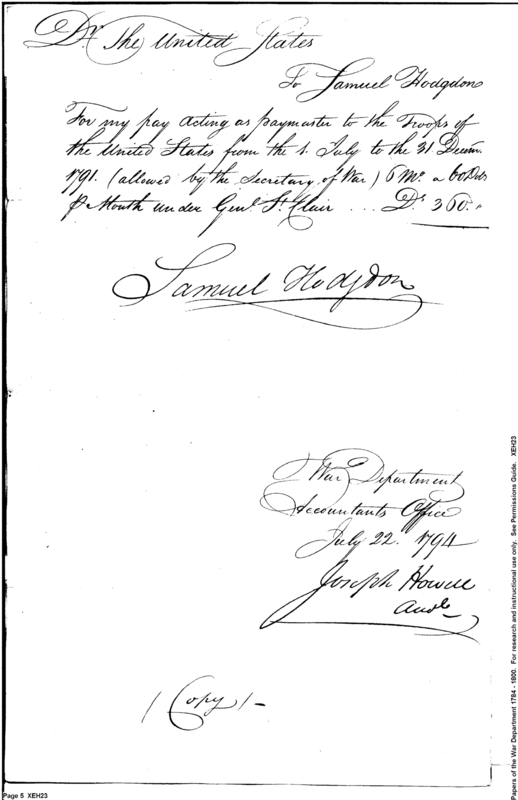 Dr. The United States
To Samuel Hodgdon
For my pay acting as paymaster to the Troops of
the United States from the 1. July to the 31 Decem.
1791. (allowed by the Secretary of War) 6 Mos. a 60 Dols
⅌ Month under Genl. St. Clair ... Ds 360..
Samuel Hodgdon
War Department
Accountants Office
July 22. 1794
Joseph Howell
(Copy)
Page 5 XEH23
Papers of the War Department 1784 - 1800. For research and instructional use only. See Permissions Guide. XEH23